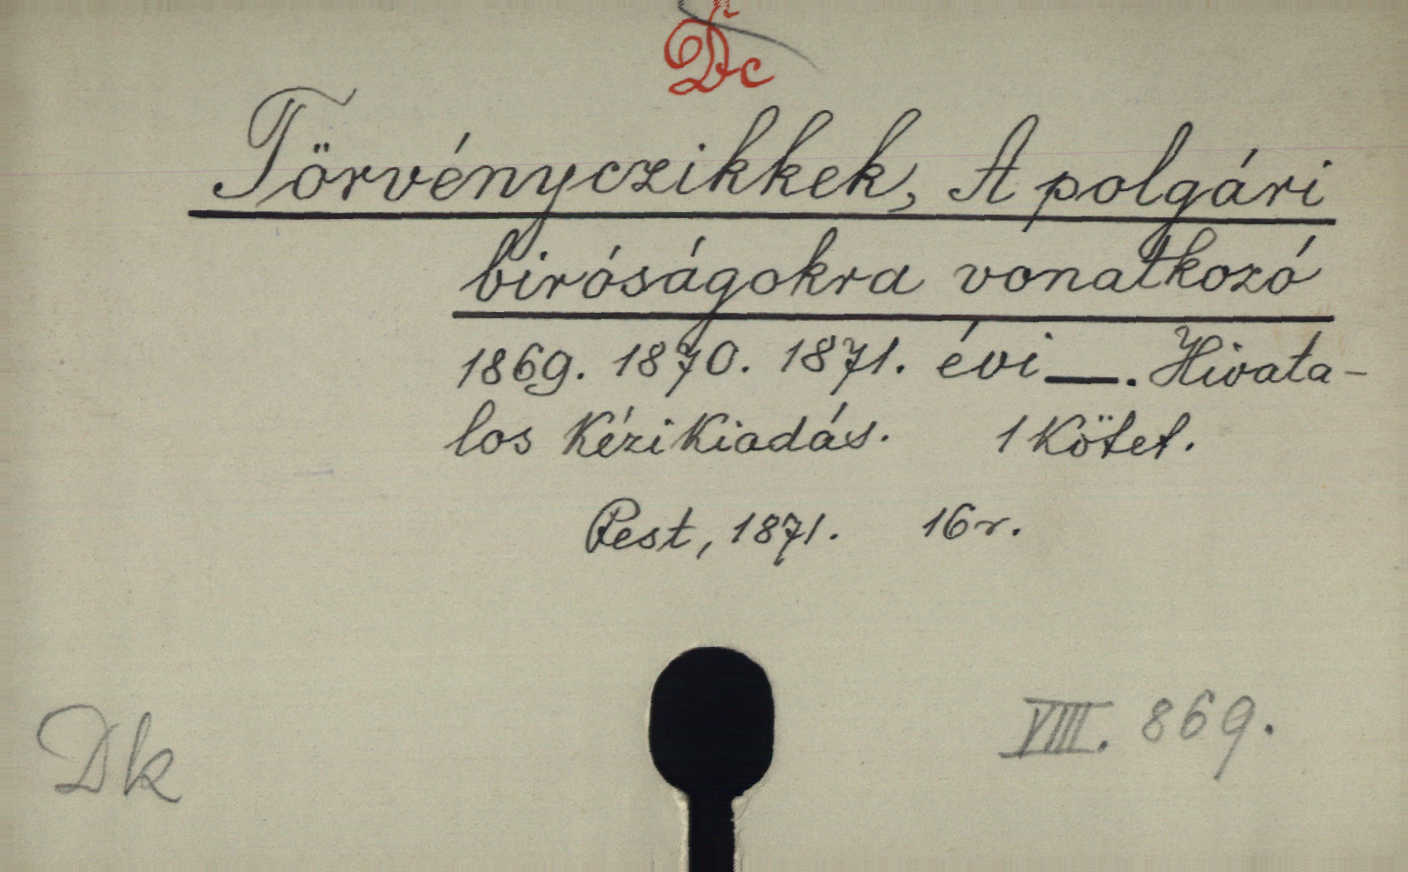 Dc
Törvényczikkek, A polgári
biróságokra vonatkozó
1869. 1870. 1871. évi —. Hivata-
los Kézi Kiadás. 1 Kötet.
Pest, 1871. 16r.
Dk VIII. 869.